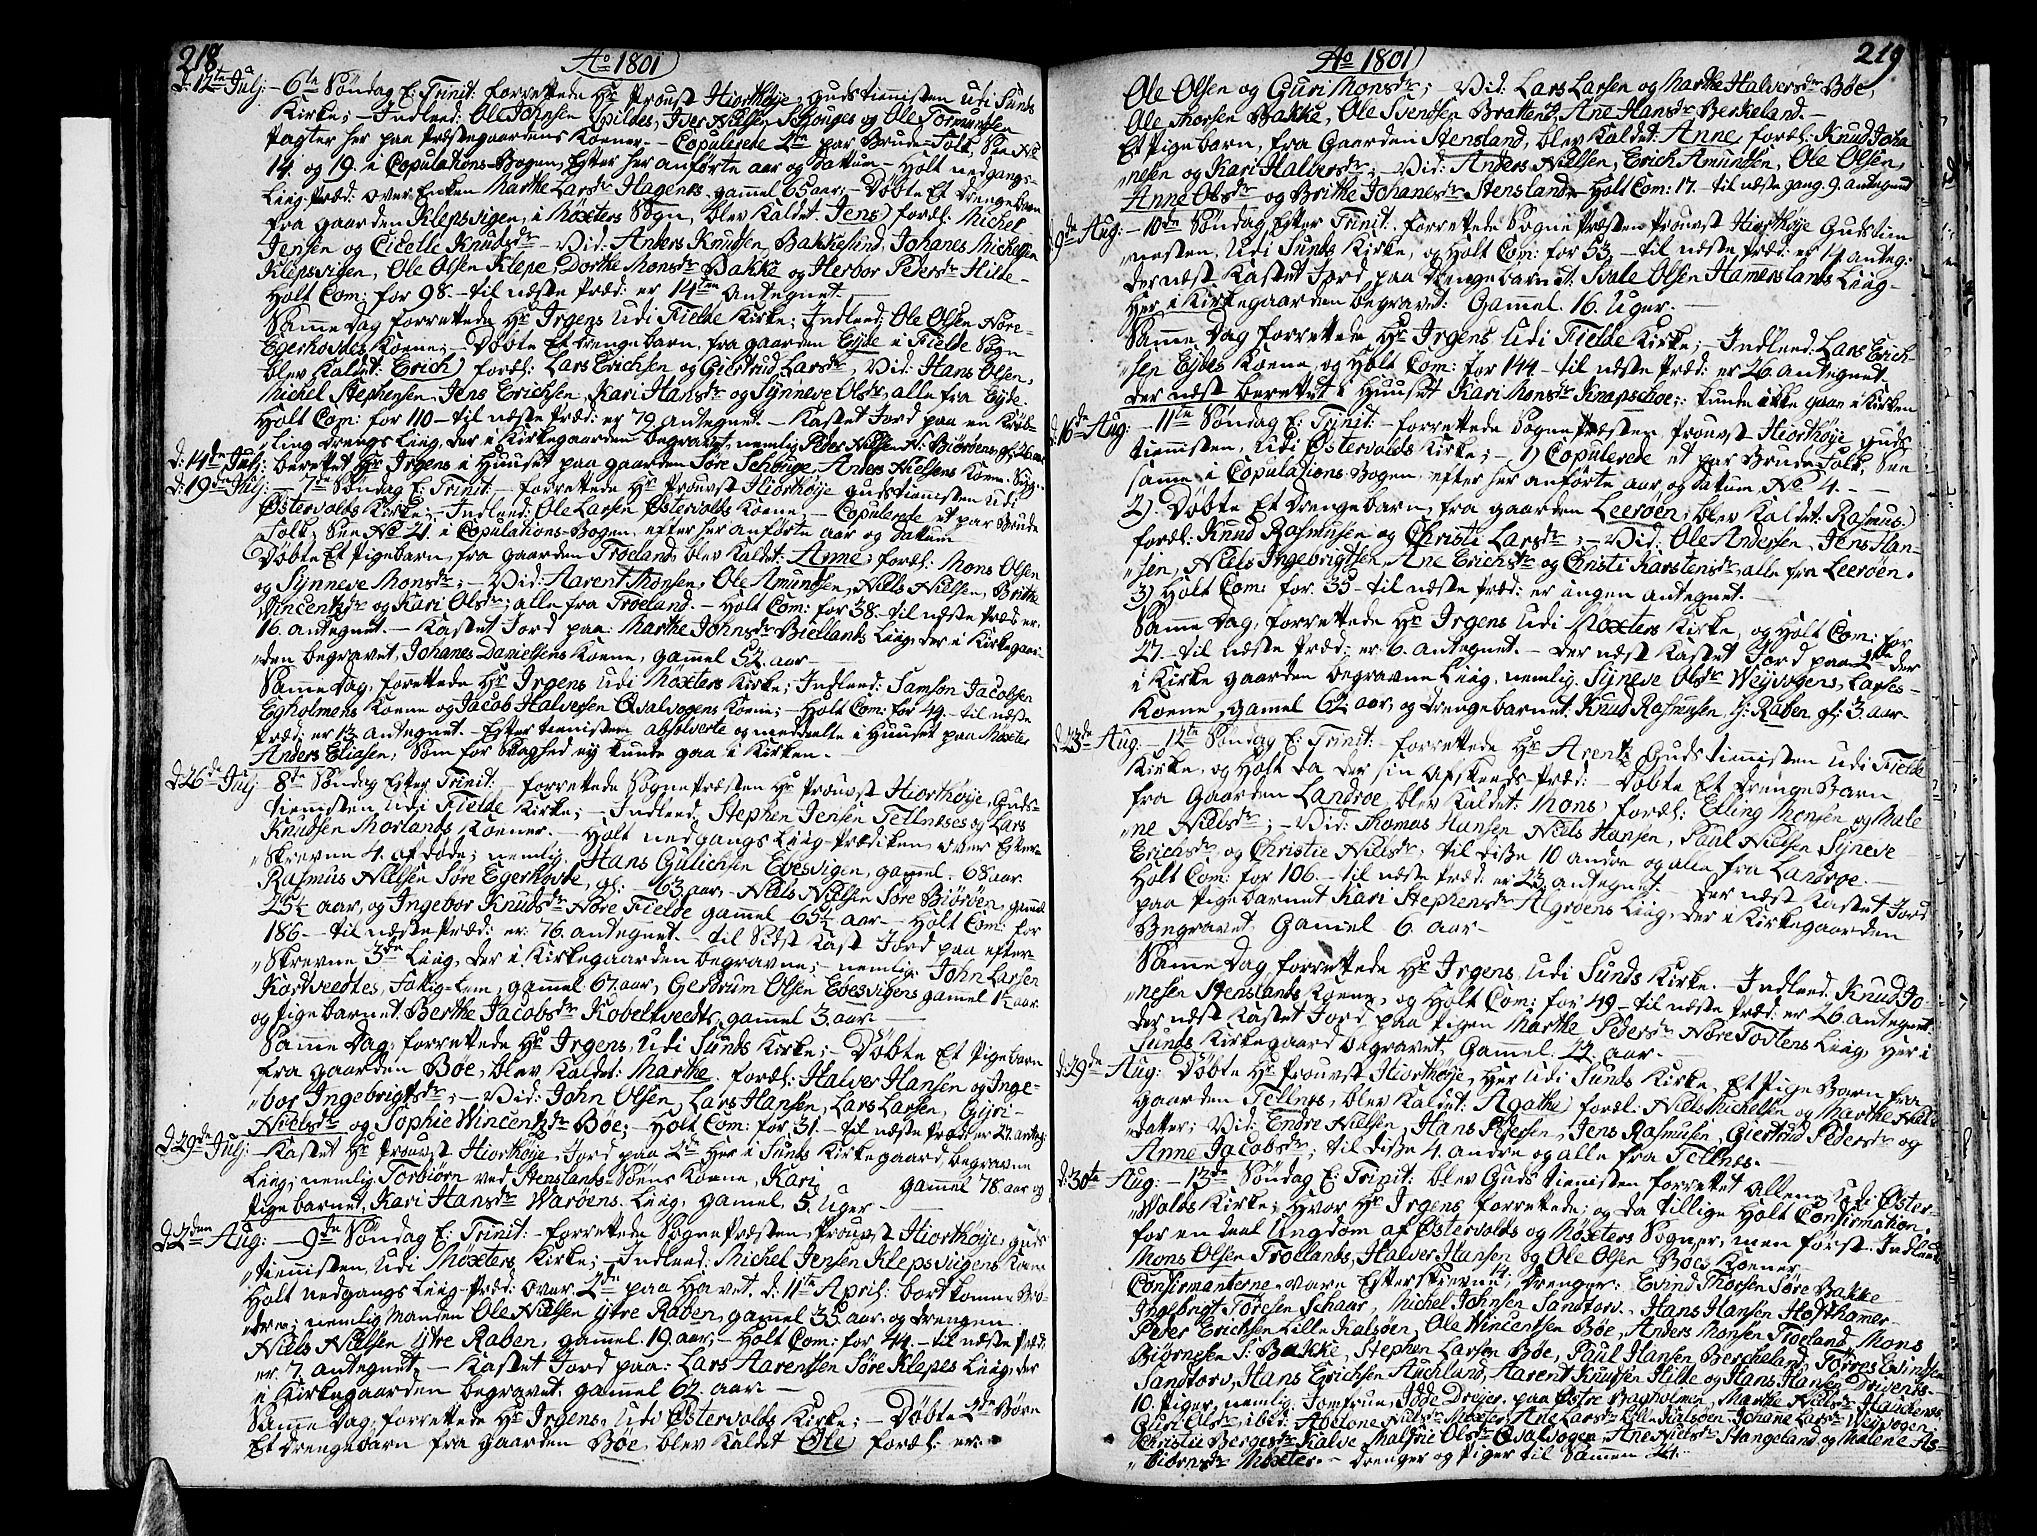 218
Ao 1801
d. 12te Julj: - 6te Søndag E: Trinit: forrettede Hr Provst Hiorthøje, gudstienisten udi Sunds
Kirke; - Indleed: Ole Johnsen Spildes, Iver Nielsen Schouges og Ole Tormundsen
Pagter her paa Præstegaardens Koener. - Copulerede 2de par Brude-Folk, See No
14. og 19. i Copulations-Bogen, Efter her anførte aar og datum - Holt nedgangs-
Liig-Præd: over Enken Marthe Larsdr Hagenes, gammel 65 aar; - Døbte Et Drengebarn
fra gaarden Klepsvigen, i Møxters Sogn, blev kaldet: Jens) foræl: Michel
Jensen og Cicelle Knudsdr - Vid: Anders Knudsen Bakkesund, Johanes Michelsen
Klepsvigen, Ole Olsen Klepe, Dorthe Monsdr Bakke og Herbor Pedersdr Hilde -
Holt Com: for 98. - til næste Præd: er 14ten Antegnet. -
Samme Dag forrettede Hr Irgens udi Fielde Kirke; Indleed: Ole Olsen Nore-
Egerhovdes Koene; - Døbte Et drengebarn, fra gaarden Eyde i Fielde Sogn
blev kaldet: Erich) foræl: Lars Erichsen og Giertrud Larsdr, Vid: Hans Olsen,
Michel Stephensen, Jens Erichsen, Kari Hansdr og Synneve Olsdr, alle fra Eyde.
Holt Com: for 110 - til næste Præd: er 79 antegnet. - Kastet Jord paa en Krøb-
ling drengs Liig, der i Kirkegaarden begravet, nemlig Peder Nielsen N: Biørøens, gl:
d: 14de Julj: berettet Hr Irgens i Huuset paa gaarden Søre Schouge, Anders Nielsens Koene.
d: 19de Julj: - 7de Søndag E: Trinit - forrettede Hr Provst Hiorthøije gudstienisten udi
Østervolds Kirke; - Indleed: Ole Larsen Østervolds Koene, - Copulerede et par Brude
Folk, See No 21. i Copulations-Bogen, efter her anførte aar og datum
Døbte Et Pigebarn, fra gaarden Troeland, blev kaldet: Anne, foræl: Mons Olsen
og Synneve Monsdr; - Vid: Aarent Monsen, Ole Amundsen, Niels Nielsen, Brithe
Vincentzdr og Kari Olsdr, alle fra Troeland. - Holt Com: for 38. - til næste Præd er.
16. antegnet. - Kastet Jord paa: Marthe Johnsdr Biellands Liig, der i Kirkegaar-
den begravet, Johanes Danielsens Koene, gammel 52. aar -
Samme Dag, forrettede Hr Irgens udi Møxters Kirke; Indleed: Samson Jacobsen
Egholmens Koene og Jacob Halversen Qvalvogens Koene; - Holt Com: for 49. - til næste
Præd: er 12 antegnet. - Efter tienisten absolverte og meddeelte i Huuset paa Møxter
Anders Eliasen, Som for Svaghed ey kunde gaa i Kirken. -
d: 26de Julj 8de Søndag Efter Trinit. - forrettede Sognepræsten Hr Provst Hiorthøije, Guds-
tienisten udi Fielde Kirke; - Indleed, Stephen Jensen Tellneses og Lars
Knudsen Morlands Koener. - Holt nedgangs Liig-Prædiken over Efter-
Skrevne 4. af døde; nemlig. Hans Gulichsen Eversvigen, gamel. 68 aar.
Rasmus Nielsen Søre Egerhovde, gl: - 63 aar, - Niels Nielsen Søre Biørøen, gamel
25½ aar, og Ingebor Knudsdr Nore Fielde gammel 65½ aar - Holt Com: for
186. - til næste Præd: er: 76. antegnet - til Sidst Kast Jord paa efter-
Skrevne 3de Liig, der i Kirkegaarden begravne; - nemlig. John Larsen
Kortveedtes, Fattig-Lem, gammel 67. aar, Gerdrum Olsen Evesvigens gamel 1½ aar.
og Pigebarnet Berthe Jacobsdr Kobeltveedts, gammel 3. aar. -
Samme Dag: forrettede Hr Irgens, udi Sunds Kirke; - Døbte Et Pigebarn
fra gaarden Bøe, blev kaldet: Marthe. foræl: Halver Hansen og Inge-
bor Ingebrigtsdr; - Vid: John Olsen, Lars Hansen, Lars Larsen, Gyri -
Nielsdr og Sophie Wincentzdr Bøe; - Holt Com: for 31. - til næste Præd: er 27. anteg:
d: 29de Julj: - Kastet Hr Provst Hiorthøije, Jord paa 2de Her i Sunds Kirkegaard begravne
Liig; nemlig Torbiørn ved Stenslands-Søens Koene, Kari gammel 78. aar og
Pigebarnet, Kari Hansdr Warøens Liig, gamel. 5. Uger
d: 2den Aug: - 9de Søndag E: Trinit: - forrettede Sognepræsten, Provst Hiorthøije, guds
tienisten, udi Møxters Kirke; - Indleed: Michel Jensen Klepsvigens Koene
Holt nedgangs Liig-Præd: over 2de paa Havet, d: 11te April: bortkomne Brø-
dre; nemlig Manden Ole Nielsen ytre Raben, gammel 35 aar, og drengen
Niels Nielsen ytre Raben, gammel. 19. aar; - Holt Com: for 44. - til næste Præd:
er. 7. antegnet; - Kastet Jord paa: Lars Aarentsen Søre Klepes Liig, der
i Kirkegaarden begravet, gamel 62. aar. -
Samme Dag: forrettede Hr Irgens, udi Østervolds Kirke; - Døbte 2de Børn
Et Drengebarn fra gaarden Bøe, blev kaldet Ole) foræl: er.
219
Ao 1801
Ole Olsen og Guri Monsdr; - Vid: Lars Larsen og Marthe Halversdr Bøe,
Ole Thorsen Bakke, Ole Svendsen Bratten, Ane Hansdr Berkeland. -
Et Pigebarn, fra Gaarden Stensland, blev kaldet: Anne, foræl: Knud Joha
nesen og Kari Halversdr; - Vid: Anders Nielsen, Erich Amundsen, Ole Olsen,
Anne Olsdr og Brithe Johanesdr Stensland, Holt Com: 17. - til næste gang. 9. antegnet
9de Aug: - 10de Søndag, Efter Trinit. forrettede Sognepræsten, Provst Hiorthøije Gudstien
nesten, udi Sunds Kirke, og holt Com: for 53. - til næste Præd: er 14. anteg:
dernæst Kastet Jord paa Drengebarnet: Ivale Olsen Hamerslands Liig -
Her i Kirkegaarden begravet: Gamel. 16. Uger. -
Samme Dag forrettede Hr Irgens udi Fielde Kirke; - Indleed: Lars Erich-
sen Eydes Koene, og Holt Com: for 144. - til næste Præd: er 26. antegnet.
der næst berettet i Huuset Kari Monsdr Knapschoe; kunde ikke gaae i Kirken
d: 16de Aug: - 11te Søndag E: Trinit: - forrettede Sognepræsten Provst Hiorthøije guds
tienisten, udi Østervolds Kirke; - 1) Copulerede et par Brude-Folk, See
samme i Copulations-Bogen, efter her anførte aar og datum, No 4. -
2) Døbte Et Drengebarn, fra gaarden Leerøen, blev kaldet: Rasmus)
foræl: Knud Rasmusen og Christi Larsdr; - Vid: Ole Andersen, Jens Han-
sen, Niels Ingebrigtsen, Ane Erichsdr og Christi Karstensdr, alle fra Leerøen.
3) Holt Com: for 35 - til næste Præd: er ingen antegnet. -
Samme Dag, forrettede Hr Irgens udi Møxters Kirke, og Holt Com: for
27. - til næste Præd: er: 6. antegnet. - der næst Kastet Jord paa 2de der
i Kirkegaarden begravne Liig, nemlig. Synneve Olsdr Weyvogens, Larses -
Koene, gamel 62 aar, og drengebarnet: Knud Rasmusen, h: Raben, gl: 3. aar -
d: 23de Aug: - 12te Søndag E: Trinit: - forrettede Hr Arentz Gudstienisten udi Fielde
Kirke, og Holt da der sin Afskeeds-Præd: - Døbte Et Drenge Barn
fra Gaarden Landroe, blev kaldet: Mons) foræl: Elling Monsen og Male
ne Nielsdr; - Vid: Thomas Hansen Niels Hansen, Paul Nielsen Syneve
Erichsdr og Christie Nielsdr; til disse 10 andre og alle fra Landroe. -
Holt Com: for 106. - til næste Præd: er 23 antegnet. - der næst Kastet Jord
paa Pigebarnet Kari Stephensdr Algrøens Liig, der i Kirkegaarden
Begravet. Gamel. 6. aar -
Samme Dag, forrettede Hr Irgens udi Sunds Kirke. - Indleed: Knud Jo-
nesen Stenslands Koene, og Holt Com: for 49 - til næste Præd: er 26. antegnet:
der næst Kastet Jord paa Pigen Marthe Pedersdr Nore Toftens Liig, Her i
Sunds Kirkegaard begravet, Gamel. 22. aar -
d: 29de Aug: Døbte Hr Provst Hiorthøije, Her udi Sunds Kirke, Et Pige Barn fra
Gaarden Tellnes, blev kaldet: Agathe) foræl: Niels Michelsen og Marthe Niels
datter; Vid: Endre Nielsen, Hans Pedersen, Jens Rasmusen, Giertrud Pedersdr og
Anne Jacobsdr; til disse 4. andre og alle fra Tellnes. -
d: 30te Aug: - 13de Søndag E: Trinit: blev Gudstienisten forrettet allene udi Øster-
Volds Kirke; Hvor Hr Irgens forrettede; og da tillige Holt Confirmation.
for en deel Ungdom af Østervolds og Møxters Sogner, men først Indleed
Mons Olsen Troelands, Halver Hansen og Ole Olsen Bøes Koener -
Confirmanterne vare Efterskrevne 14 Drenger: Evind Thorsen Søre Bakke -
Ingebrigt Toresen Schaar, Michel Johnsen Sandtorv. Hans Hansen Hosthamer -
Peder Erichsen Lille Kalsøen, Ole Wincentsen Bøe, Anders Monsen Troeland, Mons
Biørnesen S: Bakke, Stephen Larsen Bøe, Paul Hansen Bercheland, Torres Evindsen
Sandtorv, Hans Erichsen Auchland, Aarent Knudsen Hilde og Hans Hansen Drivenes -
10. Piger, nemlig: Jomfrue, Idde Dreyer, paa Østre Bagholmen, Marthe Nielsdr Haucknes,
Guri Olsdr, ibid: Abelone Nielsdr Møxter, Ane Larsdr Lille Kalsøen, Johane Larsdr Weyvogen,
Christie Bergesdr Kalve, Malfrie Olsdr Qvalvogen, Ane Nielsdr Stangeland og Malene As-
biørnsdr Møxter. - drenger og Piger til Sammen 24.